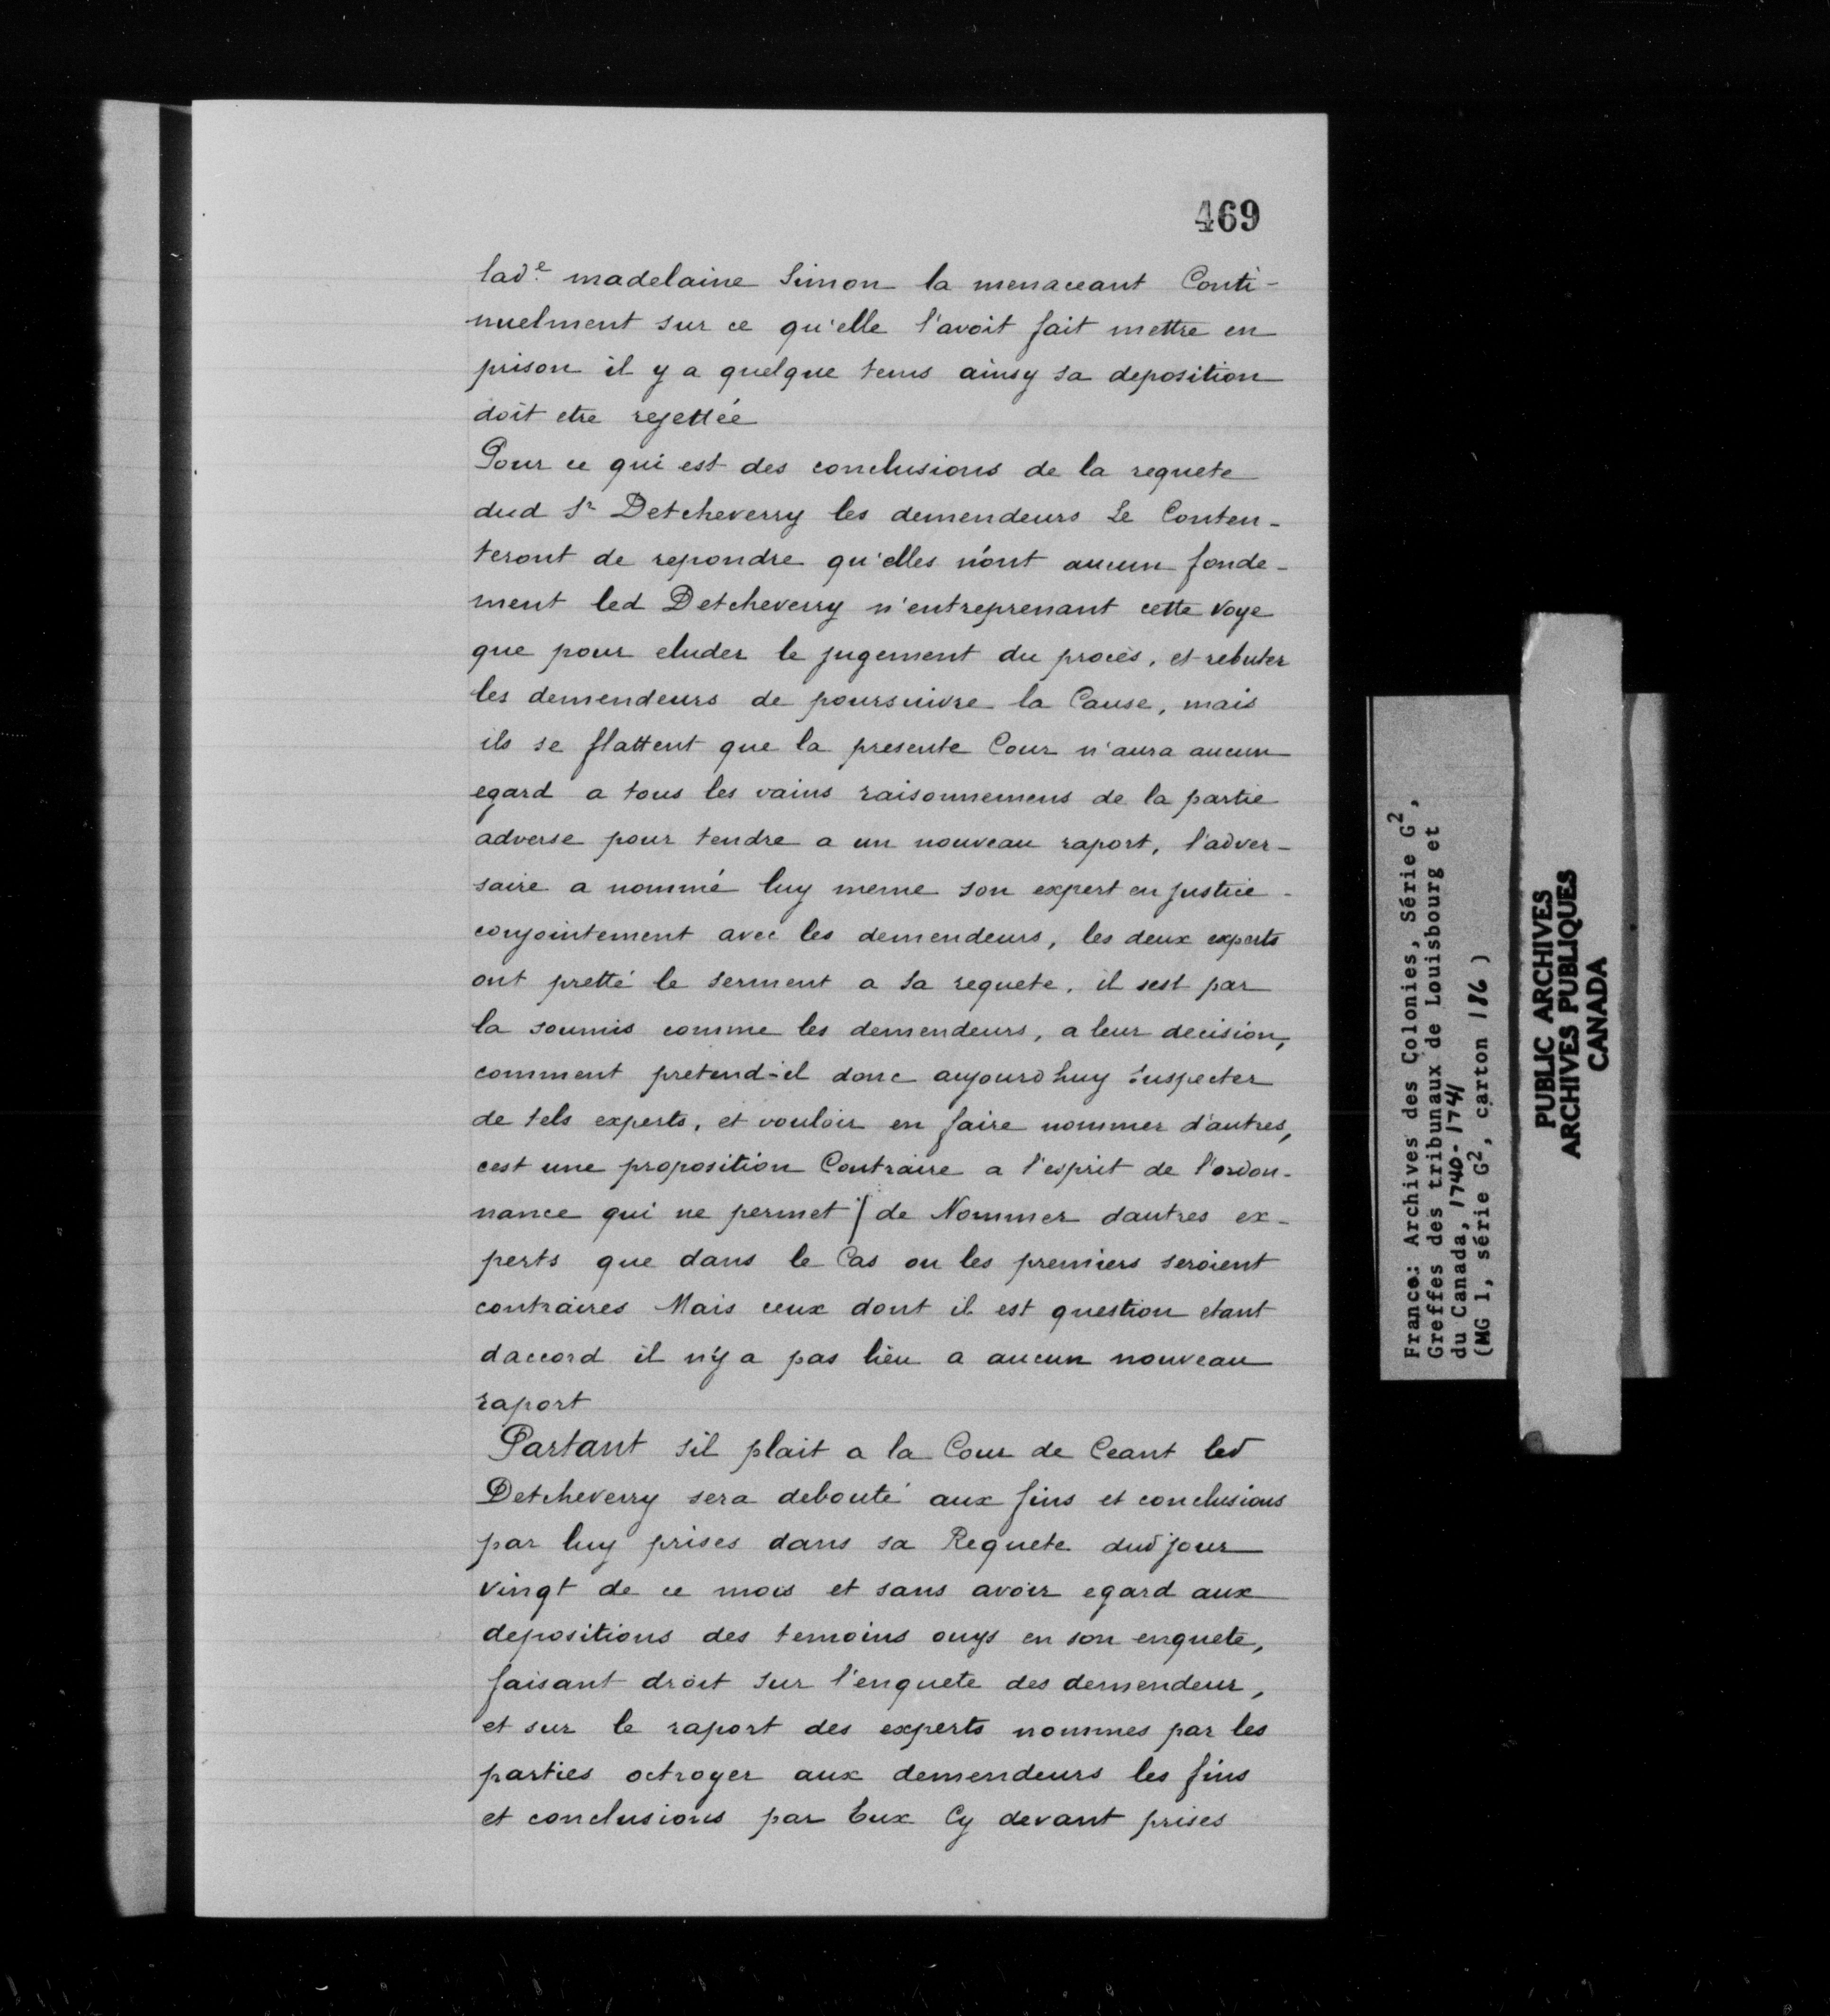 469
lad.e madelaine Simon la menaceant Conti-
nuelment sur ce qu'elle l'avoit fait mettre en
prison il y a quelque tems ainsy sa deposition
doit etre rejettée
Pour ce qui est des conclusions de la requete
dud Sr Detcheverry les demendeurs Se Conten-
teront de repondre qu'elles n'ont aucun fonde-
ment led Detcheverry n'entreprenant cette voye
que pour eluder le jugement du procès, et rebuter
les demendeurs de poursuivre la Cause, mais
ils se flattent que la presente Cour n'aura aucun
egard a tous les vains raisonnemens de la partie
adverse pour tendre a un nouveau raport, l'adver-
saire a nommé luy meme son expert en justice -
conjointement avec les demendeurs, les deux experts
ont pretté le serment a sa requete, il sest par
la soumis comme les demendeurs, a leur decision,
comment pretend-il donc aujourdhuy suspecter
de tels experts, et vouloir en faire nommer d'autres,
cest une proposition Contraire a l'esprit de l'ordon-
nance qui ne permet / de Nommer dautres ex-
perts que dans le Cas ou les premiers seroient
contraires Mais ceux dont il est question etant
daccord il n'y a pas lieu a aucun nouveau
raport
Partant sil plait a la Cour de Ceant led
Detcheverry sera debouté aux fins et conclusions
par luy prises dans sa Requete dud jour
vingt de ce mois et sans avoir egard aux
depositions des temoins ouys en son enquete,
faisant droit sur l'enquete des demendeur,
et sur le raport des experts nommes par les
parties octroyer aux demendeurs les fins
et conclusions par Eux Cy devant prises
France: Archives des Colonies, Série G2,
Greffes des tribunaux de Louisbourg et
du Canada, 1740-1741
(MG 1, série G2, carton 186 )
PUBLIC ARCHIVES
ARCHIVES PUBLIQUES
CANADA